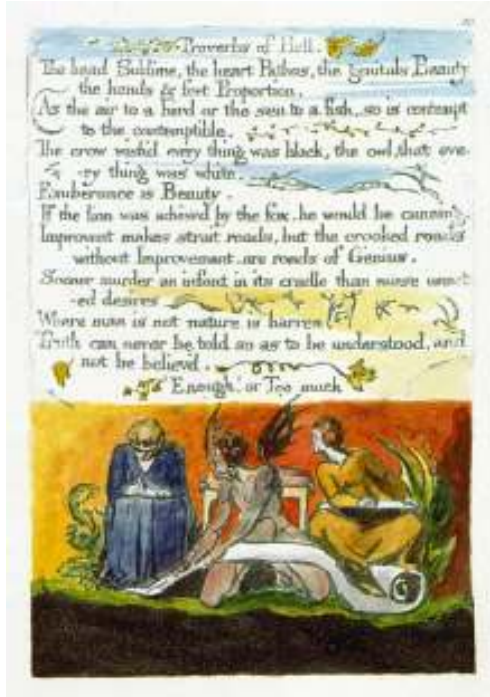 Proverbs of Hell.
The head Sublime, the heart Pathos, the genitals Beauty
the hands & feet Proportion.
As the air to a bird or the sea to a fish, so is contempt
to the contemptible.
The crow wish'd every thing was black, the owl, that eve-
-ry thing was white.
Exuberance is Beauty.
If the lion was advised by the fox, he would be cunning.
Improvent makes strait roads, but the crooked roads
without Improvement, are roads of Genius.
Sooner murder an infant in its cradle than nurse unact-
-ed desires
Where man is not nature is barren
Truth can never be told so as to be understood, and
not be believ'd.
Enough! or Too much